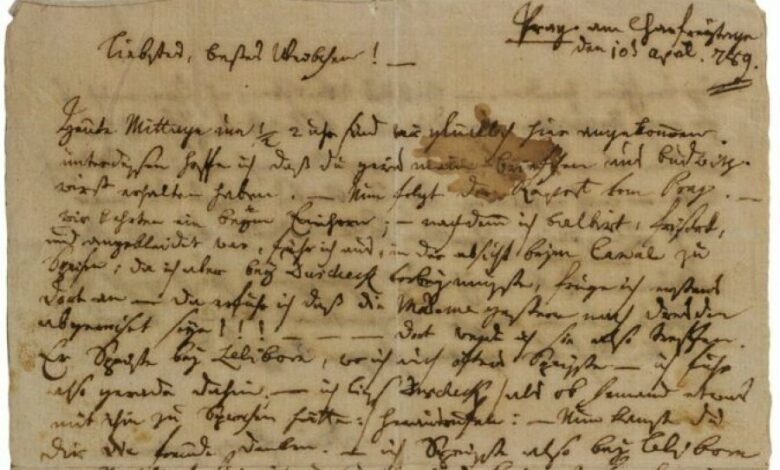 Prag am Charfreytage
den 10t april. 789.
liebstes, bestes Weibchen! —
Heute Mittags um 1/2 2 uhr sind wir glücklich hier angekommen.
unterdessen hoffe ich daß du gewis mein briefchen aus budwitz
wirst erhalten haben. — Nun folgt der Rapport von Prag. —
wir kehrten ein beym Einhorn; — nachdem ich balbirt, frisirt,
und angekleidet war, fuhr ich aus, in der absicht beym Canal zu
Speisen; da ich aber bey Duscheck vorbey musste, fruge ich erstens
dort an — da erfuhr ich daß die Madame gestern nach dresden
abgereiset seye!!! — dort werde ich sie also treffen.
Er Speiste bey Leliborn, wo ich auch öfters Speiste — ich fuhr
also gerade dahin. — ich liess Duscheck /: als ob Jemand etwas
mit ihm zu Sprechen hätte :/ herausrufen; — Nun kannst du
dir die freude denken. — ich Speiste also bey Leliborn